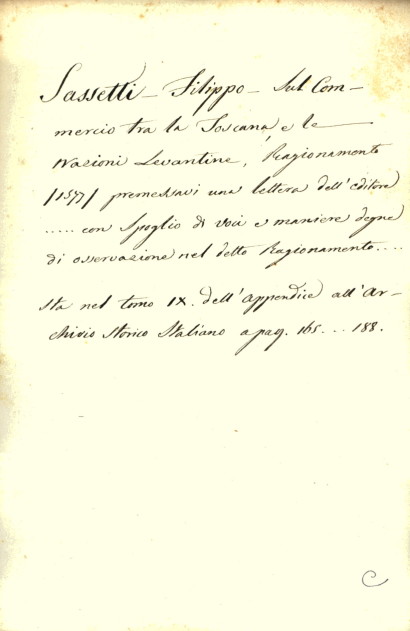 Sassetti – Filippo – Sul Com-
mercio tra la Toscana, e le
Nazioni Levantine, Ragionamento
/1577/ premessavi una lettera dell'editore
..... con Spoglio di voci e maniere degne
di osservazione nel detto Ragionamento....
Sta nel tomo IX. dell'appendice all'Ar-
chivio Storico Italiano a pag. 165... 188.
C